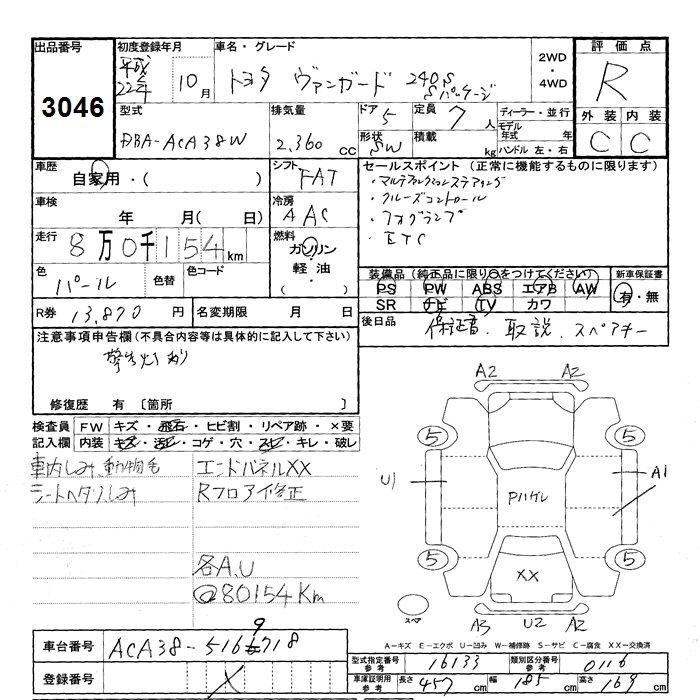 出品番号 初度登録年月 車名・グレード 2WD・4WD 評価点
3046 平成22年 10月 トヨタ ヴァンガード 240S Sパッケージ R
型式 排気量 ドア 5 定員 7人 ディーラー・並行 外装 内装
DBA-ACA38W 2,360cc 形状 SW 積載 kg モデル年式 年 ハンドル 左・右 C C
車歴 自家用・( ) シフト FAT セールスポイント(正常に機能するものに限ります)
・マルチファンクションステアリング
車検 年 月( 日) 冷房 AAC ・クルーズコントロール
・フォグランプ
走行 8万0千154km 燃料 ガソリン・軽油・( ) ・ETC
色 パール 色替 色コード 装備品(純正品に限り○をつけてください) 新車保証書
PS PW ABS エアB AW 有・無
SR ナビ TV カワ
R券 13,870円 名変期限 月 日 後日品 保証書、取説、スペアキー
注意事項申告欄(不具合内容等は具体的に記入して下さい)
警告灯あり
修復歴 有〔箇所 〕
検査員記入欄 FW キズ・飛石・ヒビ割・リペア跡・×要
内装 キズ・汚レ・コゲ・穴・スレ・キレ・破レ
車内しみ、動物毛 エンドパネルXX
シートヘタリしみ Rフロア修正
各A、U
@80154Km
A2 A2
5 5
U1 Pハゲレ A1
5 5
XX
スペア A3 U2 A2
A-キズ E-エクボ U-凹み W-補修跡 S-サビ C-腐食 XX-交換済
車台番号 ACA38-5169718
型式指定番号 参考 16133 類別区分番号 参考 0116
登録番号 X
車庫証明用 参考 長さ 457cm 幅 185cm 高さ 169cm